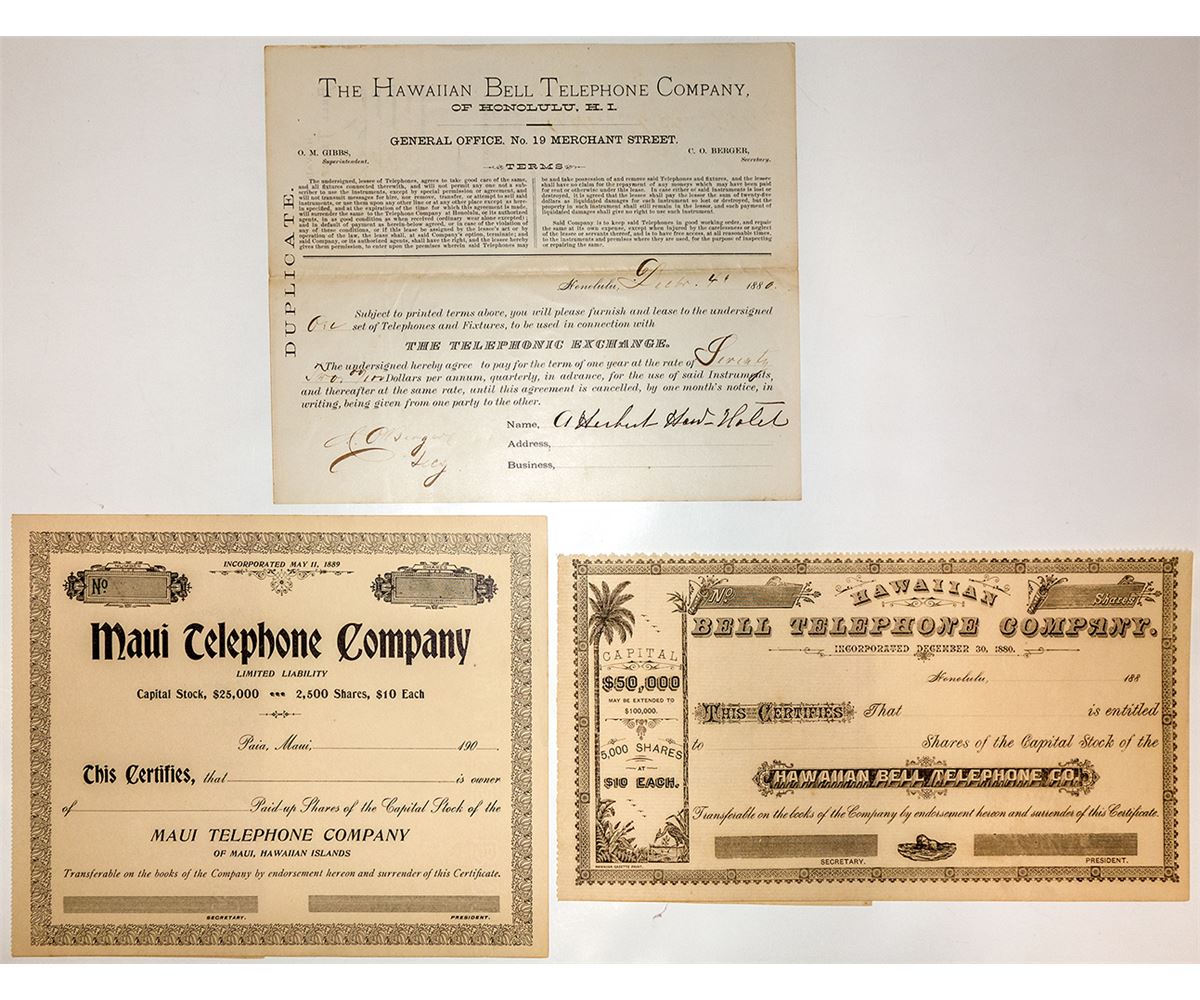 THE HAWAIIAN BELL TELEPHONE COMPANY,
OF HONOLULU, H. I.
GENERAL OFFICE, No. 19 MERCHANT STREET.
O. M. GIBBS,
Superintendent.
C. O. BERGER,
Secretary.
TERMS
DUPLICATE.
The undersigned, lessee of Telephones, agrees to take good care of the same,
and all fixtures connected therewith, and will not permit any one not a sub-
scriber to use the instruments, except by special permission or agreement, and
will not transmit messages for hire, nor remove, transfer, or attempt to sell said
instruments, or use them upon any other line or at any other place except as here-
in specified, and at the expiration of the time for which this agreement is made,
will surrender the same to the Telephone Company at Honolulu, or its authorized
agents, in as good condition as when received (ordinary wear alone excepted);
and in default of payment as herein-below agreed, or in case of the violation of
any of these conditions, or if this lease be assigned by the lessee's act or by
operation of the law, the lease shall, at said Company's option, terminate; and
said Company, or its authorized agents, shall have the right, and the lessee hereby
gives them permission, to enter upon the premises wherein said Telephones may
be and take possession of and remove said Telephones and fixtures, and the lessee
shall have no claim for the repayment of any moneys which may have been paid
for rent or otherwise under this lease. In case either of said instruments is lost or
destroyed, it is agreed that the lessee shall pay the lessor the sum of twenty-five
dollars as liquidated damages for each instrument so lost or destroyed, but the
property in such instrument shall still remain in the lessor, and such payment of
liquidated damages shall give no right to use such instrument.
Said Company is to keep said Telephones in good working order, and repair
the same at its own expense, except when injured by the carelessness or neglect
of the lessee or servants thereof, and is to have free access, at all reasonable times,
to the instruments and premises where they are used, for the purpose of inspecting
or repairing the same.
Honolulu, Decbr. 4 1880.
Subject to printed terms above, you will please furnish and lease to the undersigned
One set of Telephones and Fixtures, to be used in connection with
THE TELEPHONIC EXCHANGE.
The undersigned hereby agree to pay for the term of one year at the rate of Seventy
Two 00/100 Dollars per annum, quarterly, in advance, for the use of said Instruments,
and thereafter at the same rate, until this agreement is cancelled, by one month's notice, in
writing, being given from one party to the other.
Name, A Herbert Haw- Hotel
C. O. Berger
Secy
Address,
Business,
INCORPORATED MAY 11, 1889
No
Maui Telephone Company
LIMITED LIABILITY
Capital Stock, $25,000 2,500 Shares, $10 Each
Paia, Maui, 190
This Certifies, that is owner
of Paid-up Shares of the Capital Stock of the
MAUI TELEPHONE COMPANY
OF MAUI, HAWAIIAN ISLANDS
Transferable on the books of the Company by endorsement hereon and surrender of this Certificate.
SECRETARY. PRESIDENT.
No. HAWAIIAN Shares
BELL TELEPHONE COMPANY.
INCORPORATED DECEMBER 30, 1880.
Honolulu, 188
CAPITAL
$50,000
MAY BE EXTENDED TO
$100,000.
5,000 SHARES
AT
$10 EACH.
THIS CERTIFIES That is entitled
to Shares of the Capital Stock of the
HAWAIIAN BELL TELEPHONE CO.
Transferable on the books of the Company by endorsement hereon and surrender of this Certificate.
SECRETARY. PRESIDENT.
HAWAIIAN GAZETTE PRINT.